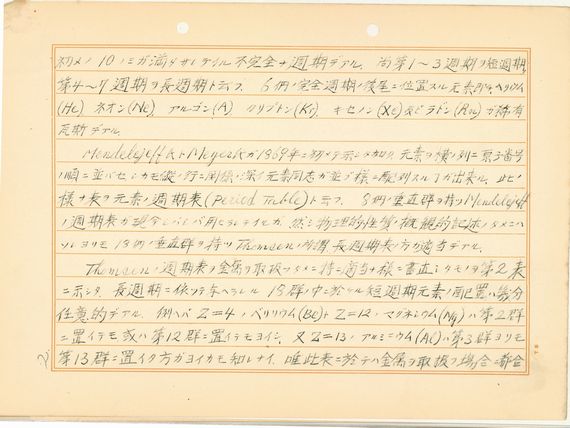 初メノ10ノミガ満タサレテイル不完全ナ週期デアル. 尚第1〜3週期ヲ短週期,
第4〜7週期ヲ長週期ト云フ. 6個ノ完全週期ノ後尾ニ位置スル元素即チヘリウム
(He) ネオン(Ne), アルゴン(A) クリプトン(Kr), キセノン(Xe)及ビラドン(Rn)ガ稀有
瓦斯デアル.
Mendelejeff及ト Meyerガ1869年ニ初メテ示シタ如ク, 元素ヲ横ノ列ニ原子番号
ノ順ニ並バセシカモ縦ノ行ニ関係ノ深イ元素同志ガ並ブ様ニ配列スル事ガ出来ル. 此ノ
様ナ表ヲ元素ノ週期表(Period Table)ト云フ. 8個ノ垂直群ヲ持ツMendelejeff
ノ週期表ガ現今シバシバ用ヒラレテイルガ, 然シ物理的性質ノ概観的記述ノタメニハ
ソレヨリモ18個ノ垂直群ヲ持ツThomsenノ所謂長週期表ノ方ガ適当デアル.
Thomsenノ週期表ヲ金属ヲ取扱フタメニ特ニ適当ナ様ニ書直シタモノヲ第2表
ニ示シタ. 長週期ニ依ツテ与ヘラレル18群ノ中ニ於ケル短週期元素ノ配置ハ幾分
任意的デアル. 例ヘバZ=4ノベリリウム(Be)トZ=12ノマグネシウム(Mg)ハ第2群
ニ置イテモ或ハ第12群ニ置イテモヨイシ, 又Z=13ノアルミニウム(Al)ハ第3群ヨリモ
第13群ニ置イタ方ガヨイカモ知レナイ. 唯此表ニ於テハ金属ヲ取扱フ場合ニ都合